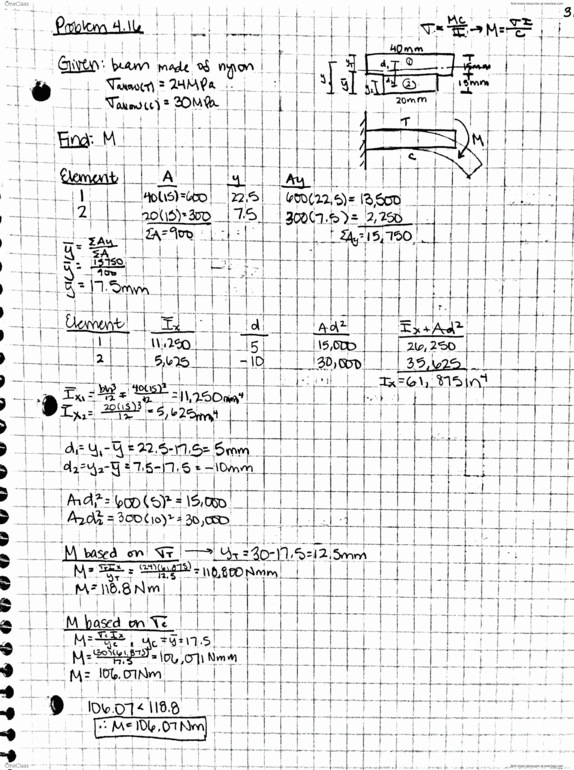 OneClass
3.
Problem 4.16
σ = Mc/I → M = σI/c
Given: beam made of nylon
σallow(T) = 24MPa
σallow(c) = 30MPa
40mm
①
②
15mm
15mm
20mm
y
ȳ
d₁
d₂
T
C
M
Find: M
Element A y Ay
1 40(15)=600 22.5 600(22.5)=13,500
2 20(15)=300 7.5 300(7.5)= 2,250
ΣA=900 ΣAy=15,750
ȳ = ΣAy/ΣA
ȳ = 15750/900
ȳ = 17.5mm
Element Īx d Ad² Īx+Ad²
1 11,250 5 15,000 26,250
2 5,625 -10 30,000 35,625
Ix=61,875in⁴
Īx₁ = bh³/12 = 40(15)³/12 = 11,250mm⁴
Īx₂ = 20(15)³/12 = 5,625mm⁴
d₁=y₁-ȳ = 22.5-17.5= 5mm
d₂=y₂-ȳ = 7.5-17.5 = -10mm
A₁d₁²=600(5)²=15,000
A₂d₂²=300(10)²=30,000
M based on σT → yT=30-17.5=12.5mm
M= σTIx/yT = (24)(61,875)/12.5 = 118,800Nmm
M= 118.8Nm
M based on σc
M= σcIx/yc , yc=ȳ=17.5
M= (30)(61,875)/17.5 = 106,071Nmm
M= 106.07Nm
106.07<118.8
∴ M=106.07Nm
OneClass